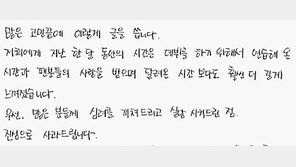 많은 고민끝에 이렇게 글을 씁니다.
저희에게 지난 한 달 동안의 시간은 데뷔를 하기 위해서 연습해 온
시간과 팬분들의 사랑을 받으며 달려온 시간 보다도 훨씬 더 길게
느껴졌습니다.
우선, 많은 분들께 심려를 끼쳐드리고 실망 시켜드린 점
진심으로 사과드립니다.